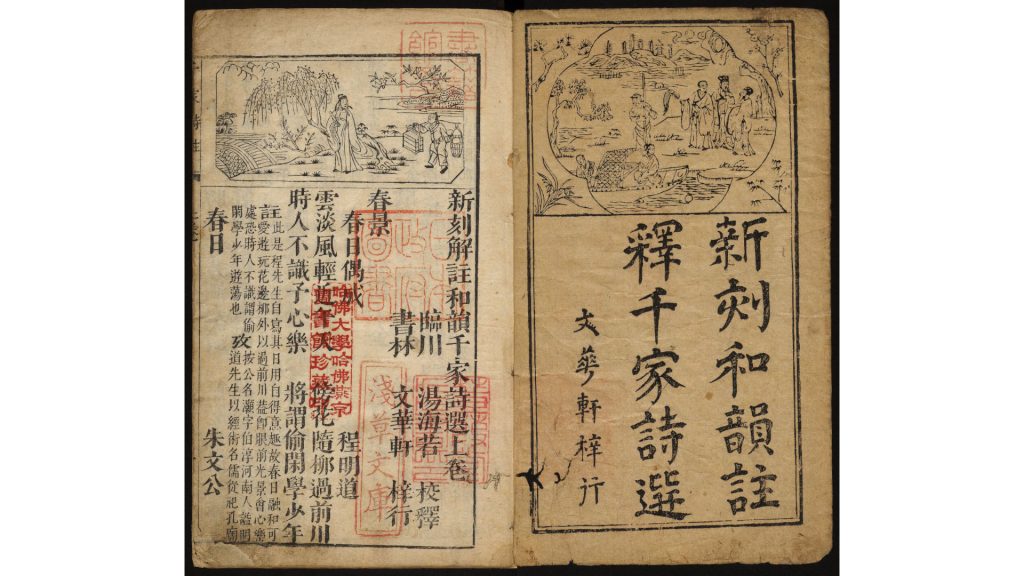 新刻和韻註
釋千家詩選
文華軒梓行
新刻解註和韻千家詩選上卷
臨川 湯海若 校釋
書林 文華軒 梓行
春景
春日偶成 程明道
雲淡風輕近午天 傍花隨柳過前川
時人不識予心樂 將謂偷閑學少年
註此是程先生自寫其日用自得意趣故春日融和可
愛遊玩花邊柳外以過前川盖即眼前光景會心樂
處恐時人不識謂偷 攷按公名灝字伯淳河南人謚明
閑學少年遊蕩也 道先生以經術名儒從祀孔廟
春日 朱文公
哈佛大學哈佛燕京
圖書館珍藏印
淺草文庫